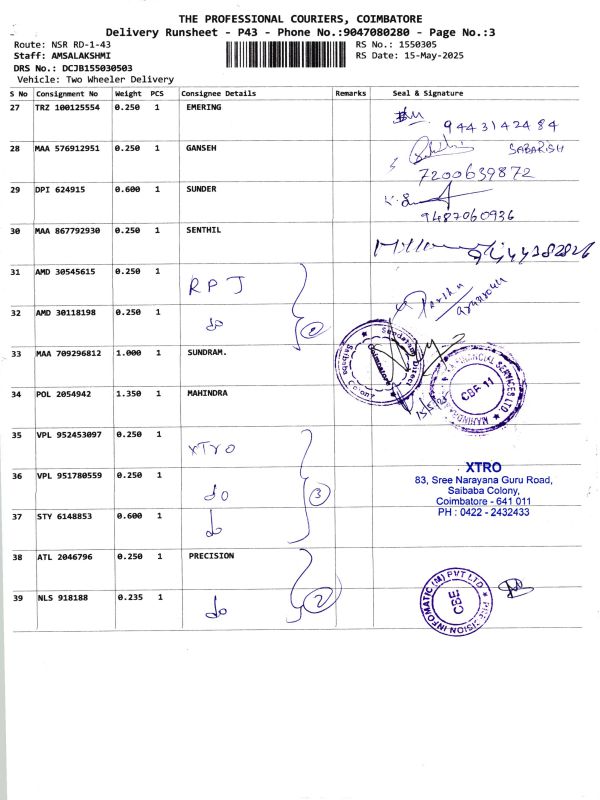 THE PROFESSIONAL COURIERS, COIMBATORE
Delivery Runsheet - P43 - Phone No.:9047080280 - Page No.:3
Route: NSR RD-1-43
RS No.: 1550305
Staff: AMSALAKSHMI
RS Date: 15-May-2025
DRS No.: DCJB155030503
Vehicle: Two Wheeler Delivery
S No Consignment No Weight PCS Consignee Details Remarks Seal & Signature
27 TRZ 100125554 0.250 1 EMERING
9443142484
28 MAA 576912951 0.250 1 GANSEH
SABARISH
7200639872
29 DPI 624915 0.600 1 SUNDER
9487060936
30 MAA 867792930 0.250 1 SENTHIL
31 AMD 30545615 0.250 1 RPJ
32 AMD 30118198 0.250 1 do 2
33 MAA 709296812 1.000 1 SUNDRAM.
Saibaba Colony
Coimbatore
34 POL 2054942 1.350 1 MAHINDRA
FINANCIAL SERVICES LTD. ★ MAHINDRA
CBE 11
35 VPL 952453097 0.250 1 XTRO
36 VPL 951780559 0.250 1 do 3
XTRO
83, Sree Narayana Guru Road,
Saibaba Colony,
Coimbatore - 641 011
PH : 0422 - 2432433
37 STY 6148853 0.600 1 do
38 ATL 2046796 0.250 1 PRECISION
39 NLS 918188 0.235 1 do 2
PRECISION INFOMATIC (M) PVT LTD ★
CBE